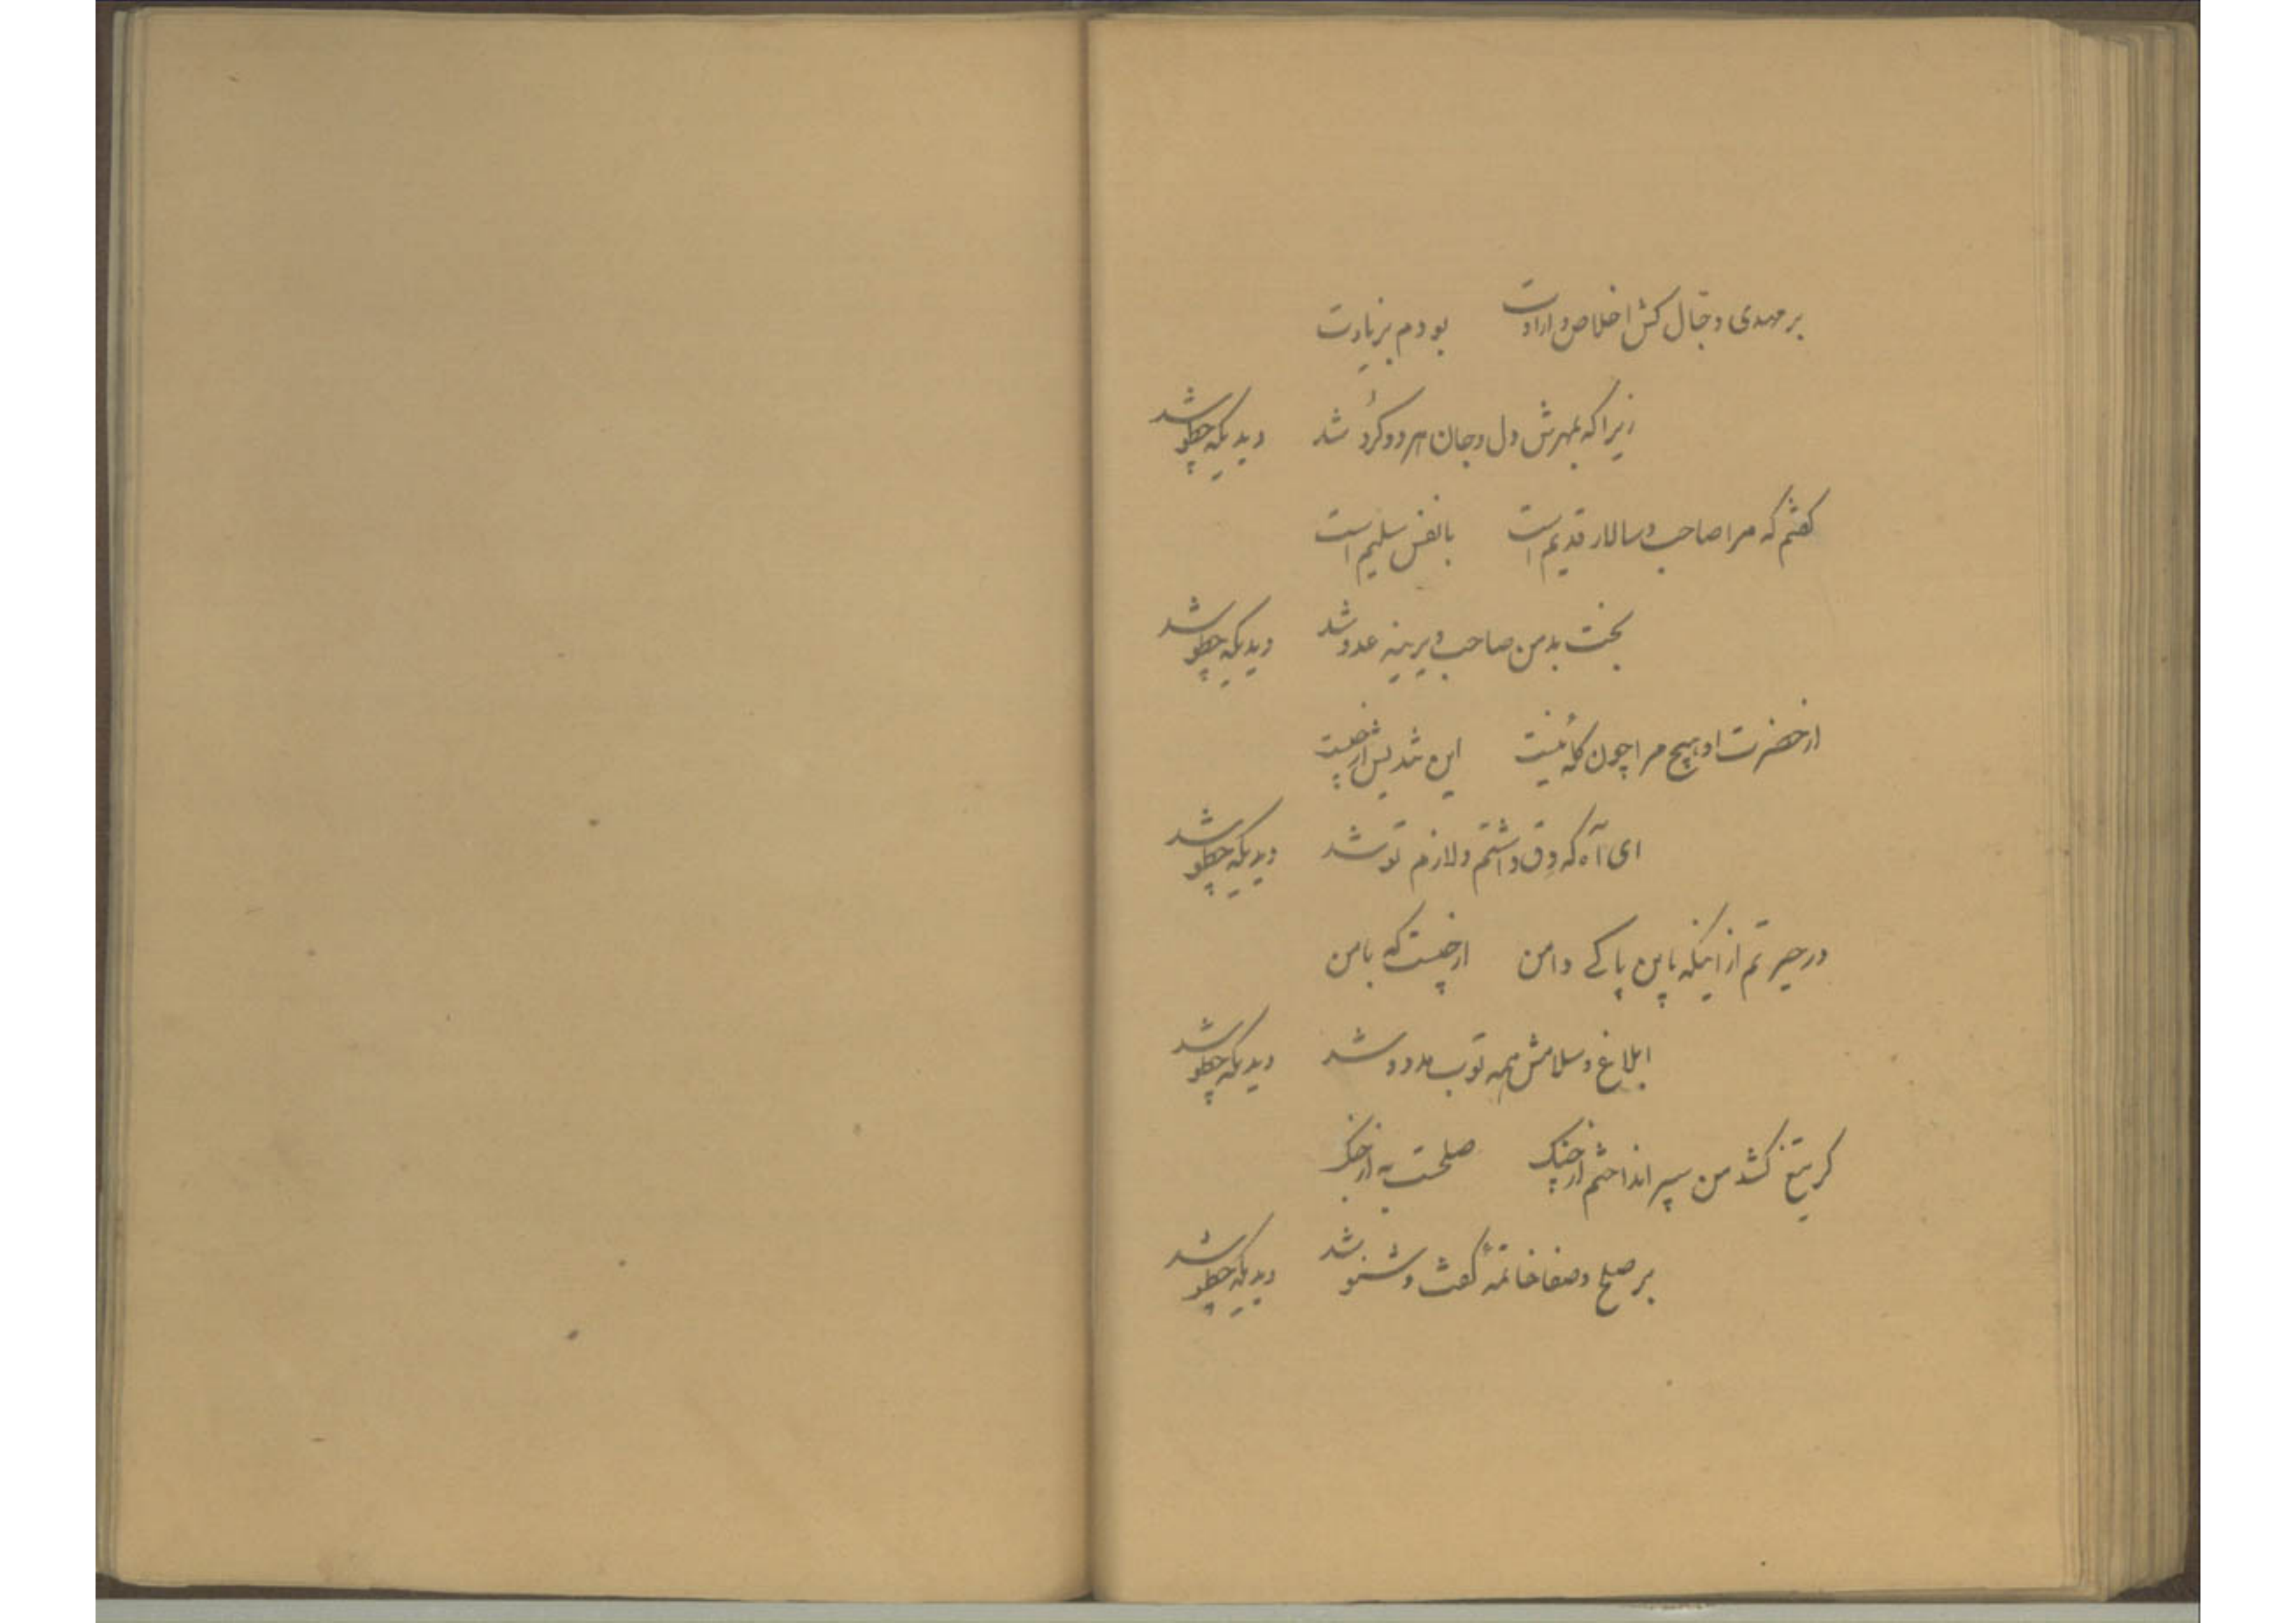 بر مهدی دجّال کش اخلاص و ارادت بودم بزیارت
زیرا که بمهرش دل و جان هر دو گرو شد دیدیکه چطو شد
گفتم که مرا صاحب و سالار قدیم است با نفس سلیم است
بخت بد من صاحب دیرینه عدو شد دیدیکه چطو شد
از حضرت او هیچ مرا چون گلهٔ نیست این شد پس از چیست
ای آه که دق داشتم و لازم تو شد دیدیکه چطو شد
در حیرتم از اینکه باین پاکی دامن از چیست که با من
ابلاغ و سلامش همه توب شد دیدیکه چطو شد
گر تیغ کشد من سپر انداختم از جنگ صلحست به از جنگ
بر صلح و صفا خاتمهٔ گفت و شنو شد دیدیکه چطو شد